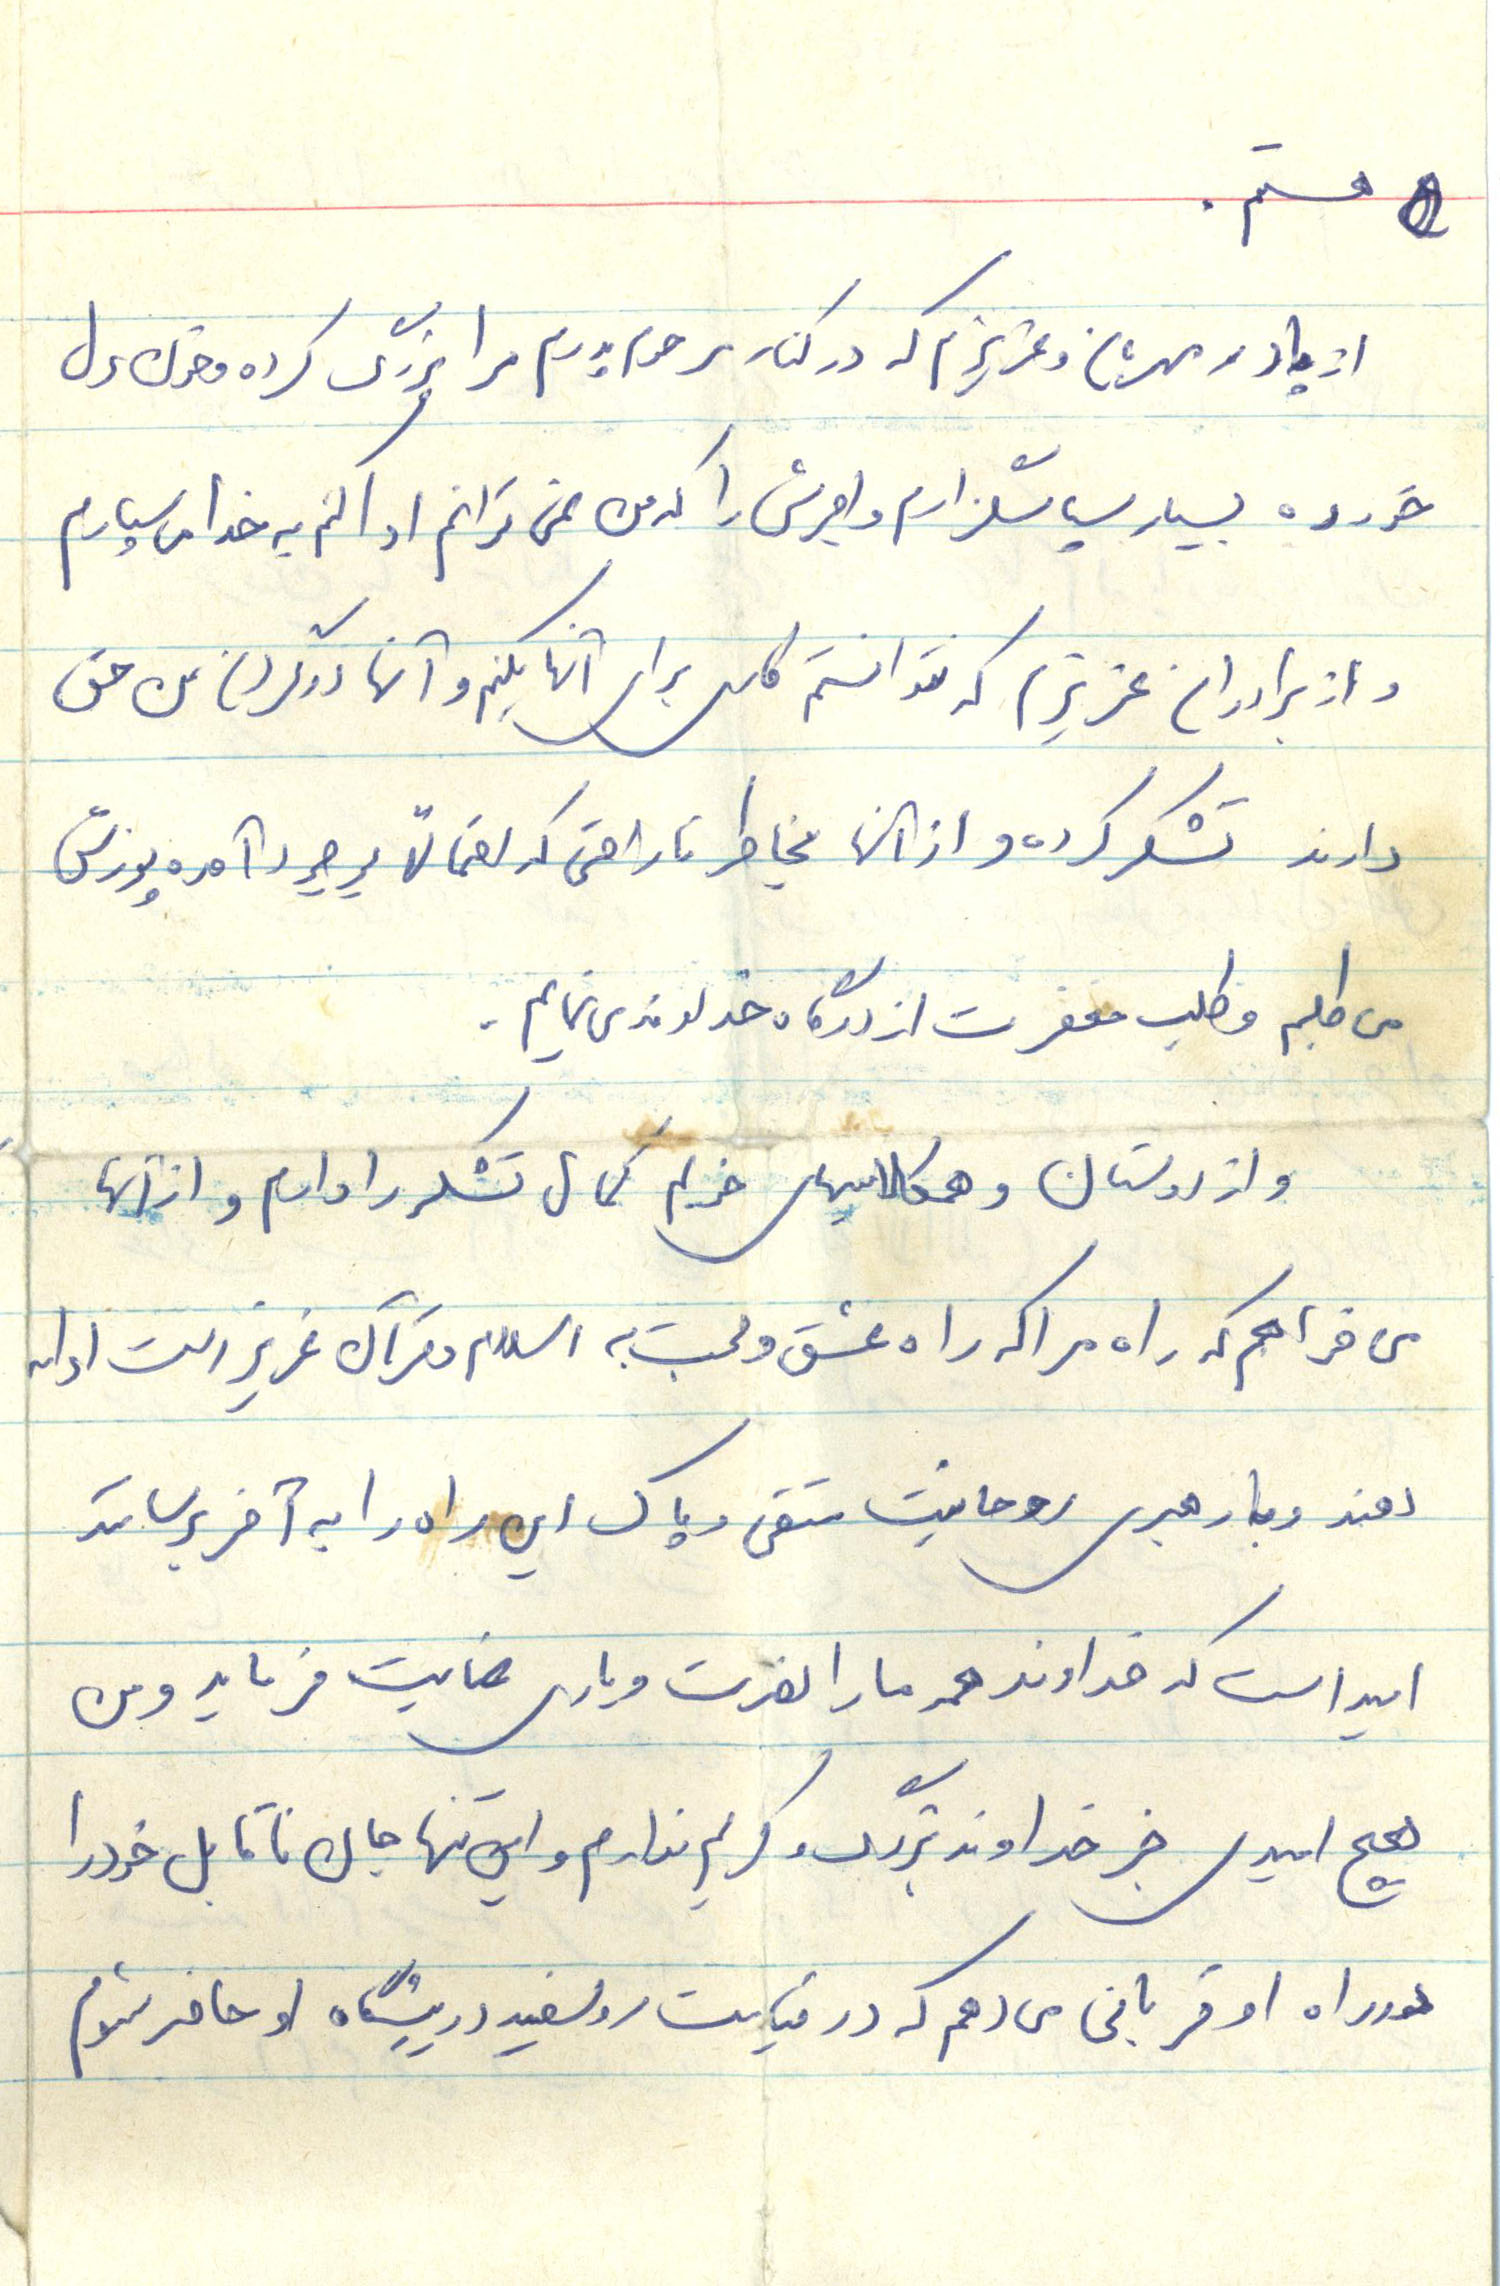 هستم .
از مادر مهربان و عزیزم که در کنار مرحوم پدرم مرا بزرگ کرده و خون دل
خورده بسیار سپاسگزارم و اجرش را که من نمی توانم ادا کنم به خدا می سپارم
و از برادران عزیزم که نتوانستم کاری برای آنها بکنم و آنها در گردن من حق
دارند تشکر کرده و از آنها بخاطر ناراحتی که احتمالاً بوجود آمده پوزش
می طلبم و طلب مغفرت از درگاه خداوندی می نمایم .
و از دوستان و همکلاسیهای خوبم کمال تشکر را دارم و از آنها
می خواهم که راه مرا که راه عشق و محبت به اسلام و قرآن عزیز است ادامه
دهند و با رهبری روحانیت متقی و پاک این راه را به آخر برسانند
امید است که خداوند همه ما را نصرت و یاری عنایت فرماید و من
هیچ امیدی جز خداوند بزرگ و کریم ندارم و این تنها جان ناقابل خود را
در راه او قربانی می دهم که در قیامت رو سفید در پیشگاه او حاضر شوم